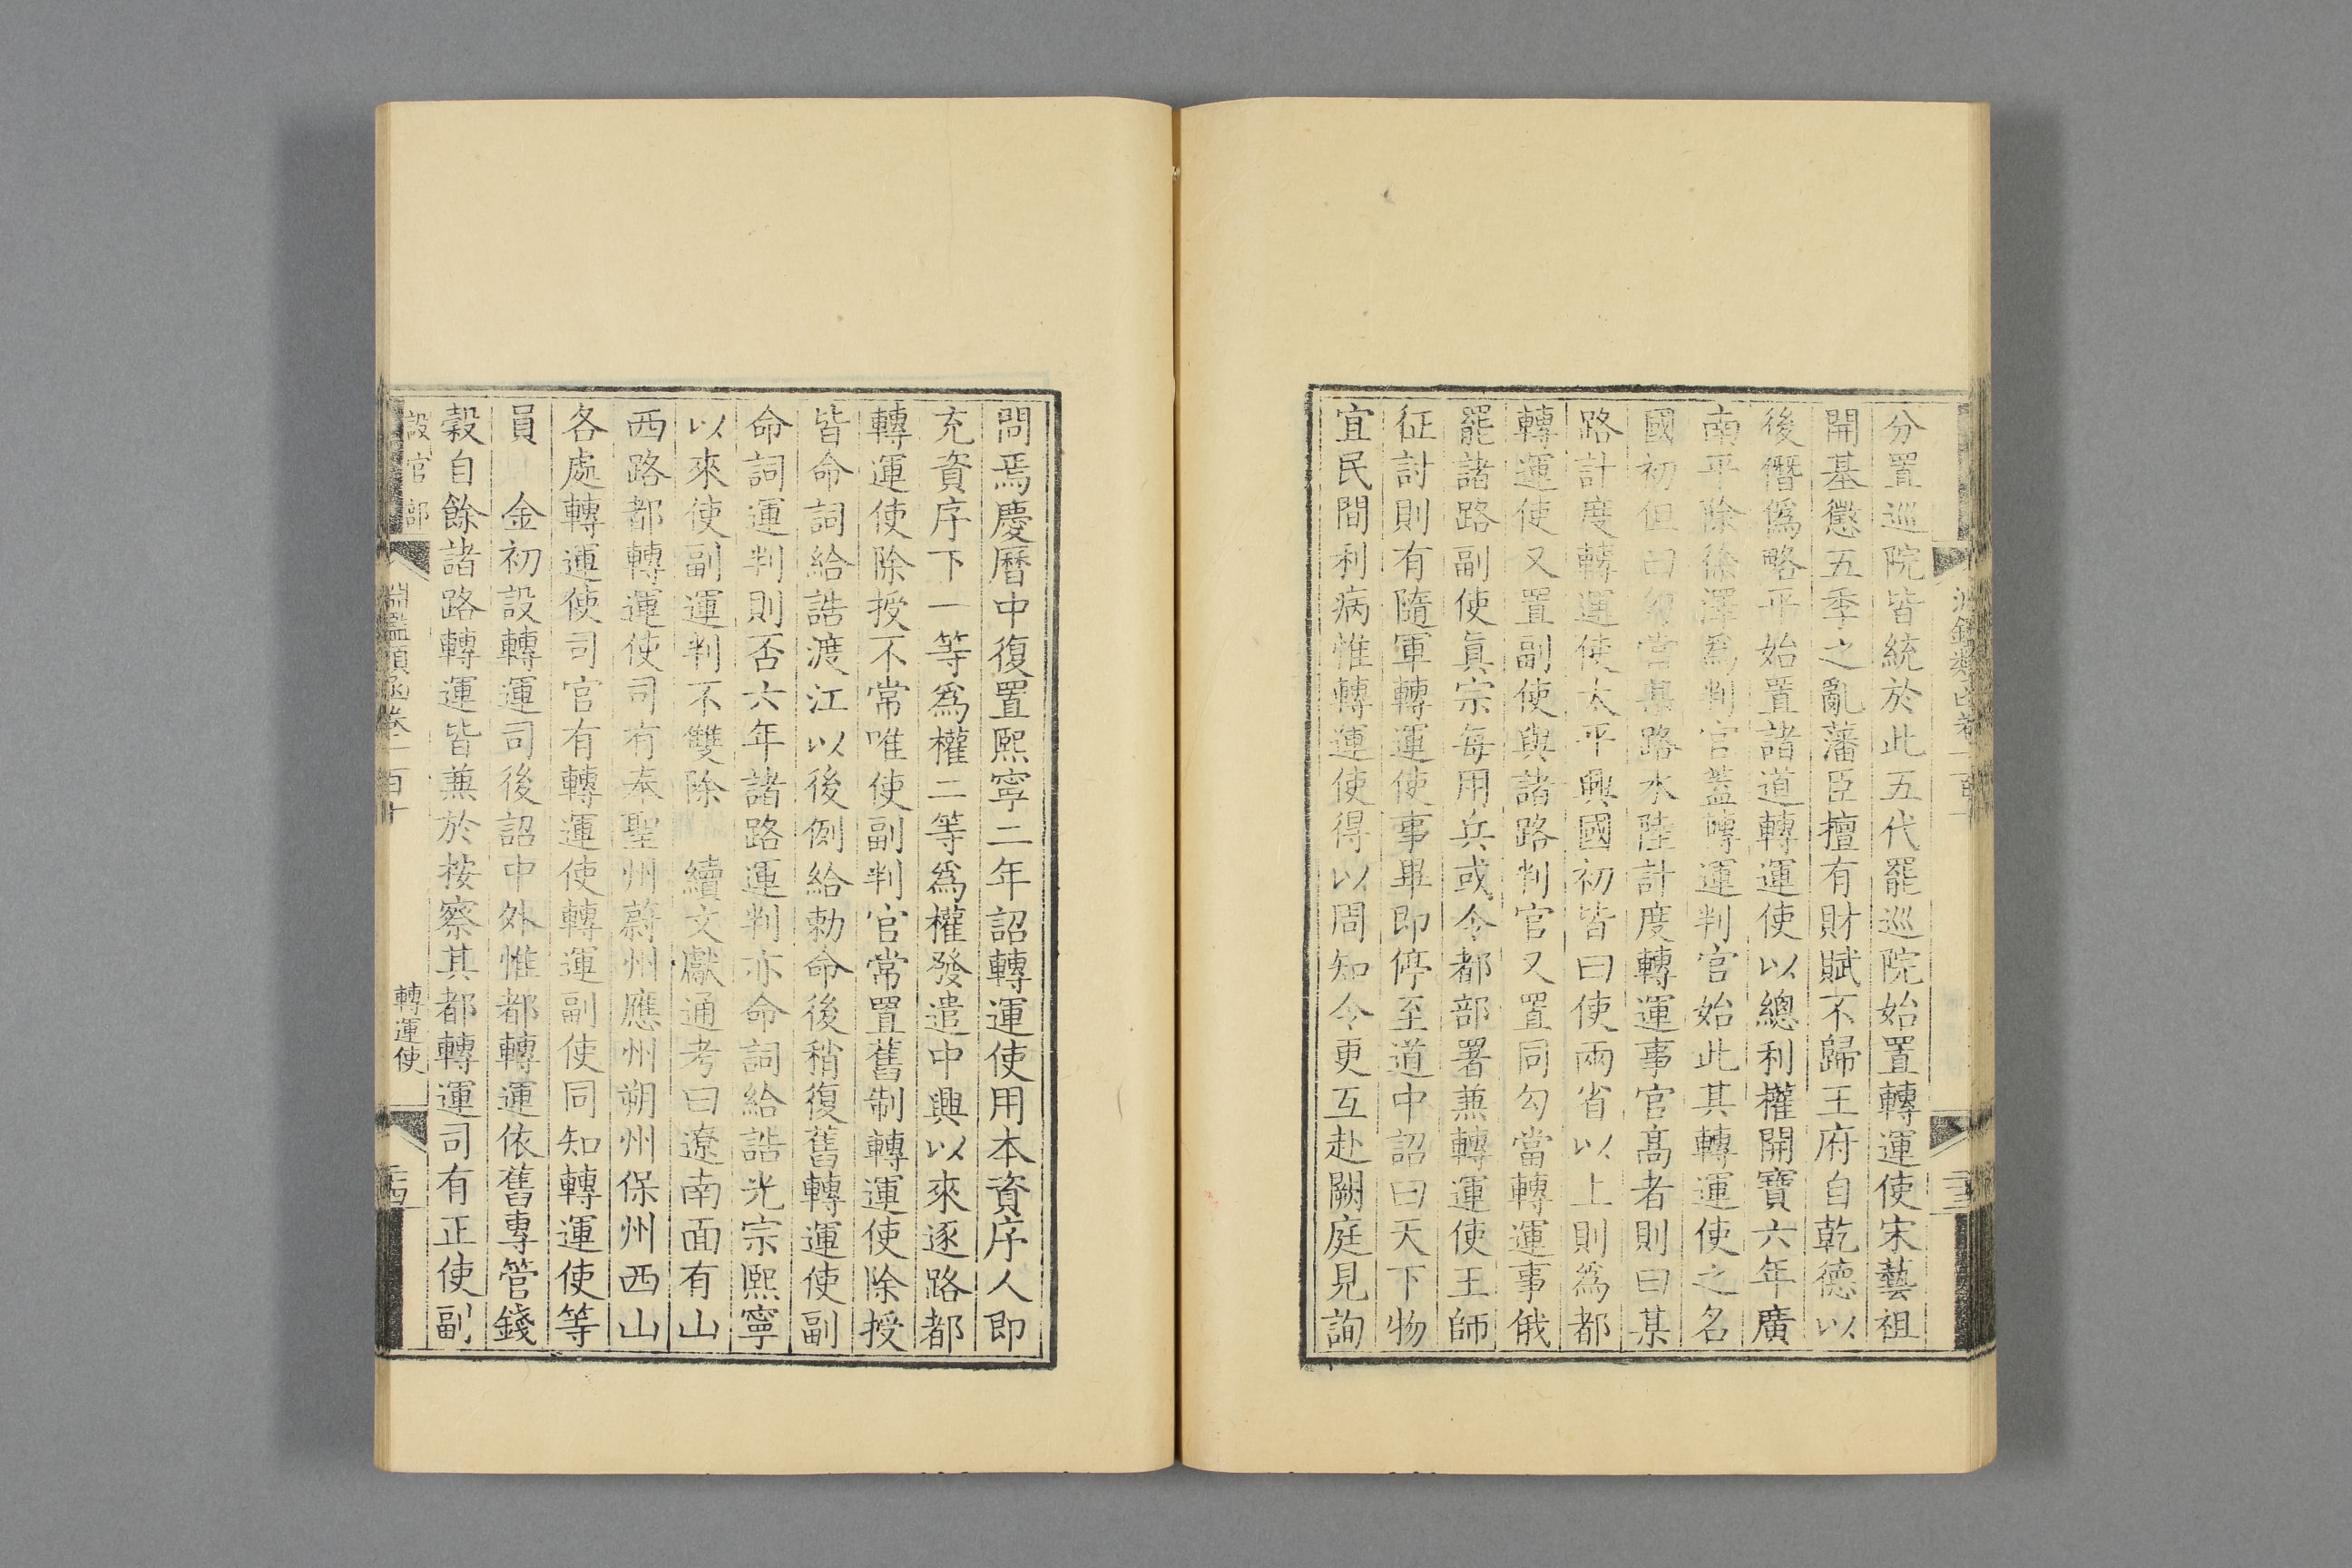 分置巡院皆統於此五代罷巡院始置轉運使宋藝祖
開基懲五季之亂藩臣擅有財賦不歸王府自乾德以
後僭僞略平始置諸道轉運使以總利權開寶六年廣
南平除徐澤爲判官蓋轉運判官始此其轉運使之名
國初但曰勾當某路水陸計度轉運事官高者則曰某
路計度轉運使太平興國初皆曰使兩省以上則爲都
轉運使又置副使與諸路判官又置同勾當轉運事俄
罷諸路副使眞宗每用兵或令都部署兼轉運使王師
征討則有隨軍轉運使事畢即停至道中詔曰天下物
宜民間利病惟轉運使得以周知令更互赴闕庭見詢
問焉慶曆中復置熙寧二年詔轉運使用本資序人即
充資序下一等爲權二等爲權發遣中興以來逐路都
轉運使除授不常唯使副判官常置舊制轉運使除授
皆命詞給誥渡江以後例給勅命後稍復舊轉運使副
命詞運判則否六年諸路運判亦命詞給誥光宗熙寧
以來使副運判不雙除 續文獻通考曰遼南面有山
西路都轉運使司有奉聖州蔚州應州朔州保州西山
各處轉運使司官有轉運使轉運副使同知轉運使等
員 金初設轉運司後詔中外惟都轉運依舊專管錢
穀自餘諸路轉運皆兼於按察其都轉運司有正使副
設官部
淵鑑類函卷一百十
轉運使